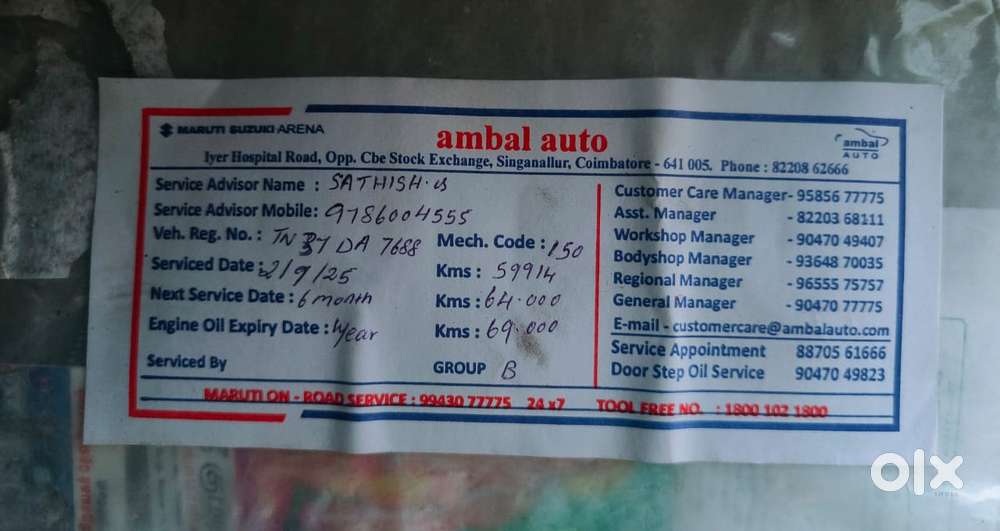 MARUTI SUZUKI ARENA
ambal auto
ambal AUTO
Iyer Hospital Road, Opp. Cbe Stock Exchange, Singanallur, Coimbatore - 641 005. Phone : 82208 62666
Service Advisor Name : SATHISH.
Service Advisor Mobile: 9786004555
Veh. Reg. No. : TN 37 DA 7688 Mech. Code : 150
Serviced Date : 2/9/25 Kms : 59914
Next Service Date : 6 month Kms : 64.000
Engine Oil Expiry Date : 1year Kms : 69.000
Serviced By GROUP B
Customer Care Manager- 95856 77775
Asst. Manager - 82203 68111
Workshop Manager - 90470 49407
Bodyshop Manager - 93648 70035
Regional Manager - 96555 75757
General Manager - 90470 77775
E-mail - customercare@ambalauto.com
Service Appointment 88705 61666
Door Step Oil Service 90470 49823
MARUTI ON - ROAD SERVICE : 99430 77775 24 x7 TOOL FREE NO. : 1800 102 1800
olx